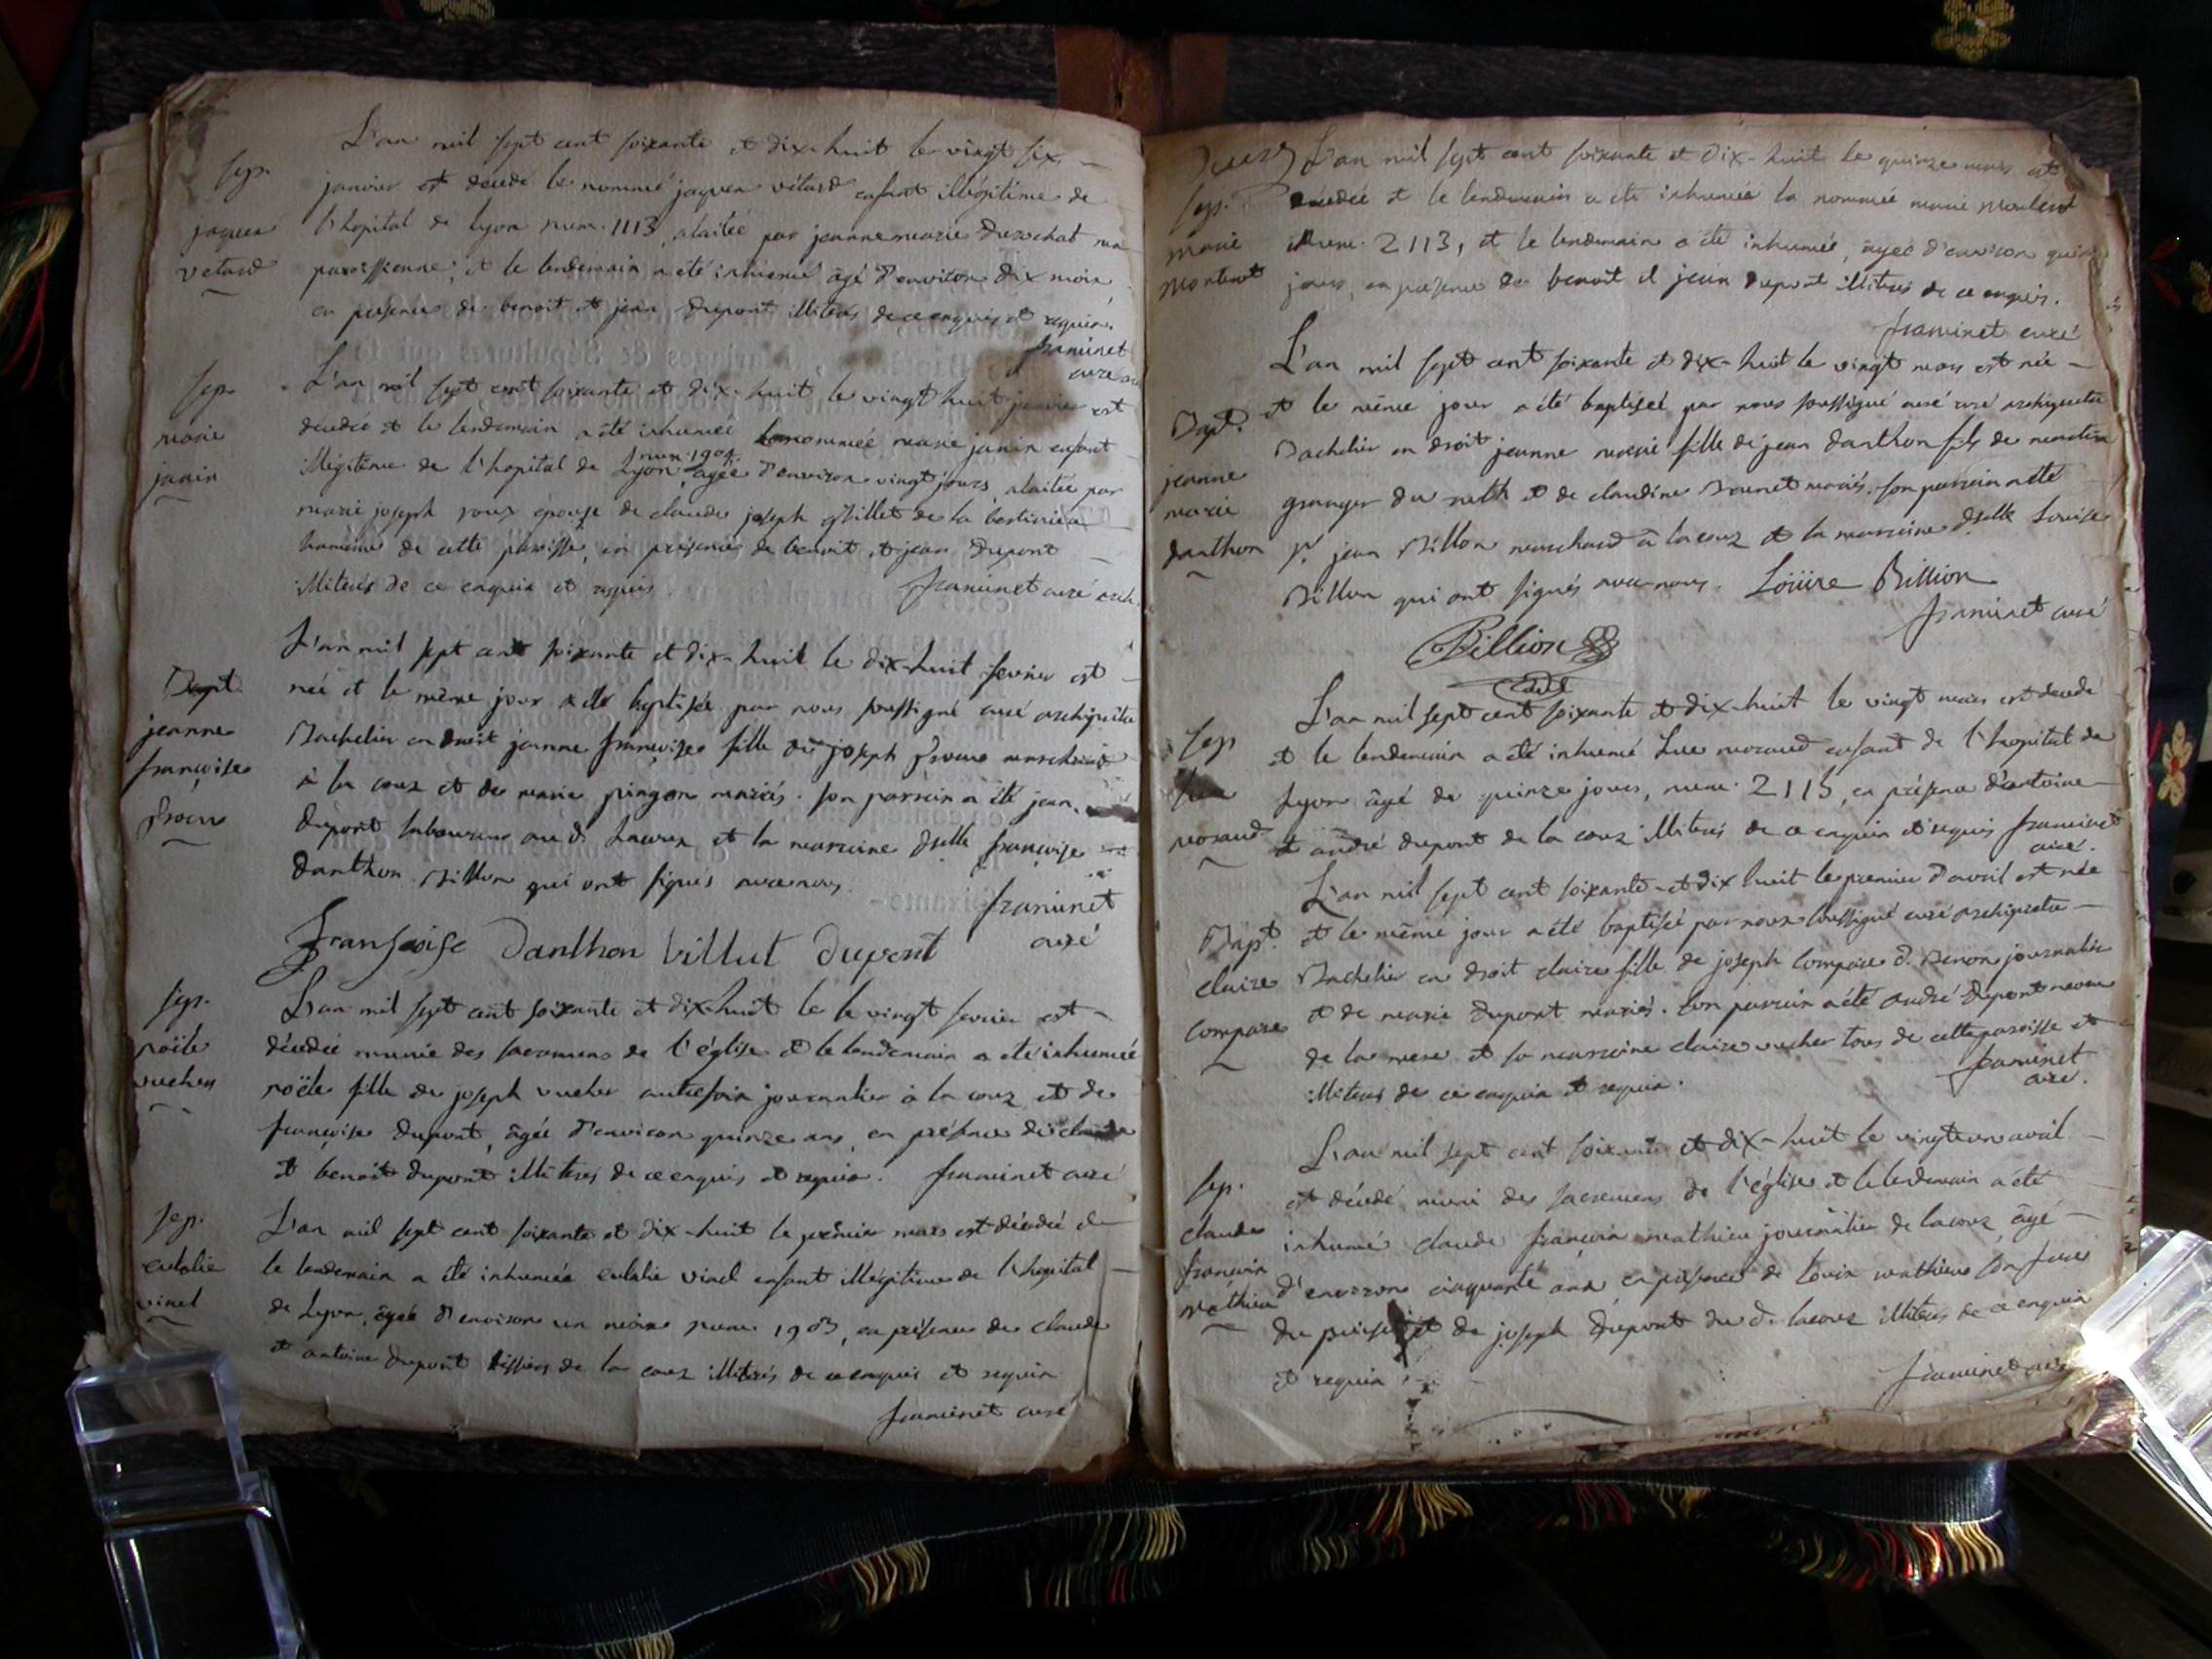 L'an mil sept cent soixante et dix-huit le vingt six
sep. janvier est décédé le nommé jaques vétard enfant illégitime de
jaques l'hopital de lyon num. 1113, alaitée par jeanne marie ma
vetard paroissienne, et le lendemain a été inhumé âgé d'environ dix mois
en présence de benoit et jean dupont illiterés de ce enquis et requis.
framinet
curé
sep. L'an mil sept cent soixante et dix-huit le vingt huit janvier est
marie décédée et le lendemain a été inhumée la nommée marie janin enfant
janin illégitime de l'hopital de Lyon num. 1904, agée d'environ vingt jours, alaitée par
marie joseph roux épouse de claude joseph de la
hameau de cette paroisse, en présence de benoit et jean dupont
illiterés de ce enquis et requis. framinet curé arch.
L'an mil sept cent soixante et dix-huit le dix-huit fevrier est
Bapt. née et le même jour a été baptisée par nous soussigné curé archiprêtre
jeanne Bachelier en droit jeanne françoise fille de joseph marchand
françoise à la coux et de marie pingon mariés. son parrain a été jean
dupont au d. Lacoux et la marraine dselle françoise
danthon Billion qui ont signés avec nous.
framinet
curé
Fransoise Danthon billut dupont
sep. L'an mil sept cent soixante et dix-huit le le vingt fevrier est
noële décédée munie des sacremens de l'église et le lendemain a été inhumée
vucher noële fille de joseph vucher autrefois journalier à la coux et de
françoise dupont, âgée d'environ quinze ans, en présence de claude
et benoit dupont illiterés de ce enquis et requis. framinet curé
sep. L'an mil sept cent soixante et dix-huit le premier mars est décédée et
eulalie le lendemain a été inhumée eulalie vinel enfant illégitime de l'hopital
vinel de Lyon, âgée d'environ un mois num. 1903, en présence de claude
et antoine dupont de la coux illiterés de ce enquis et requis
framinet curé
L'an mil sept cent soixante et dix-huit le quinze mars est
sep. décédée et le lendemain a été inhumée la nommée marie montent
marie num. 2113, et le lendemain a été inhumée, âgée d'environ quinze
montent jours, en présence de benoit et jean dupont illiterés de ce enquis.
framinet curé
L'an mil sept cent soixante et dix-huit le vingt mars est née
Bapt. et le même jour a été baptisée par nous soussigné curé archiprêtre
jeanne Bachelier en droit jeanne marie fille de jean danthon fils de
marie granger du et de claudine mariés. son parrain a été
danthon Sr. jean Billion marchand à la coux et la marraine dselle Louise
Billion qui ont signés avec nous. Loüise Billion
framinet curé
Billion
L'an mil sept cent soixante et dix-huit le vingt mars est décédé
sep et le lendemain a été inhumé Luc moraud enfant de l'hopital de
Lyon âgé de quinze jours, num. 2115, en présence d'antoine
moraud et andré dupont de la coux illiterés de ce enquis et requis framinet
curé.
L'an mil sept cent soixante et dix huit le premier d'avril est née
Bapt. et le même jour a été baptisée par nous soussigné curé archiprêtre
claire Bachelier en droit claire fille de joseph compare d. journalier
compare et de marie dupont mariés. son parrain a été andré dupont neveu
de la mere et sa marraine claire vucher tous de cette paroisse et
illiterés de ce enquis et requis. framinet
curé.
L'an mil sept cent soixante et dix-huit le vingt un avril
sep. est décédé muni des sacremens de l'église et le lendemain a été
claude inhumé claude françois mathieu journalier de lacoux, âgé
françois d'environ cinquante ans, en présence de louis mathieu son frere
mathieu du et de joseph dupont du d. lacoux illiterés de ce enquis
et requis framinet curé